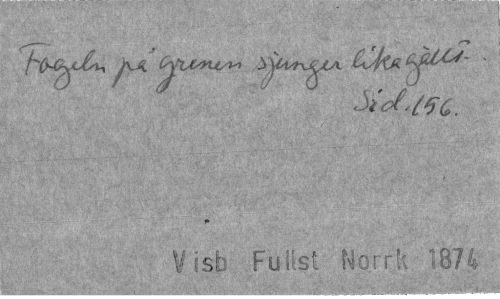 Fogeln på grenen sjunger lika gällt.
Sid. 156.
Visb Fullst Norrk 1874